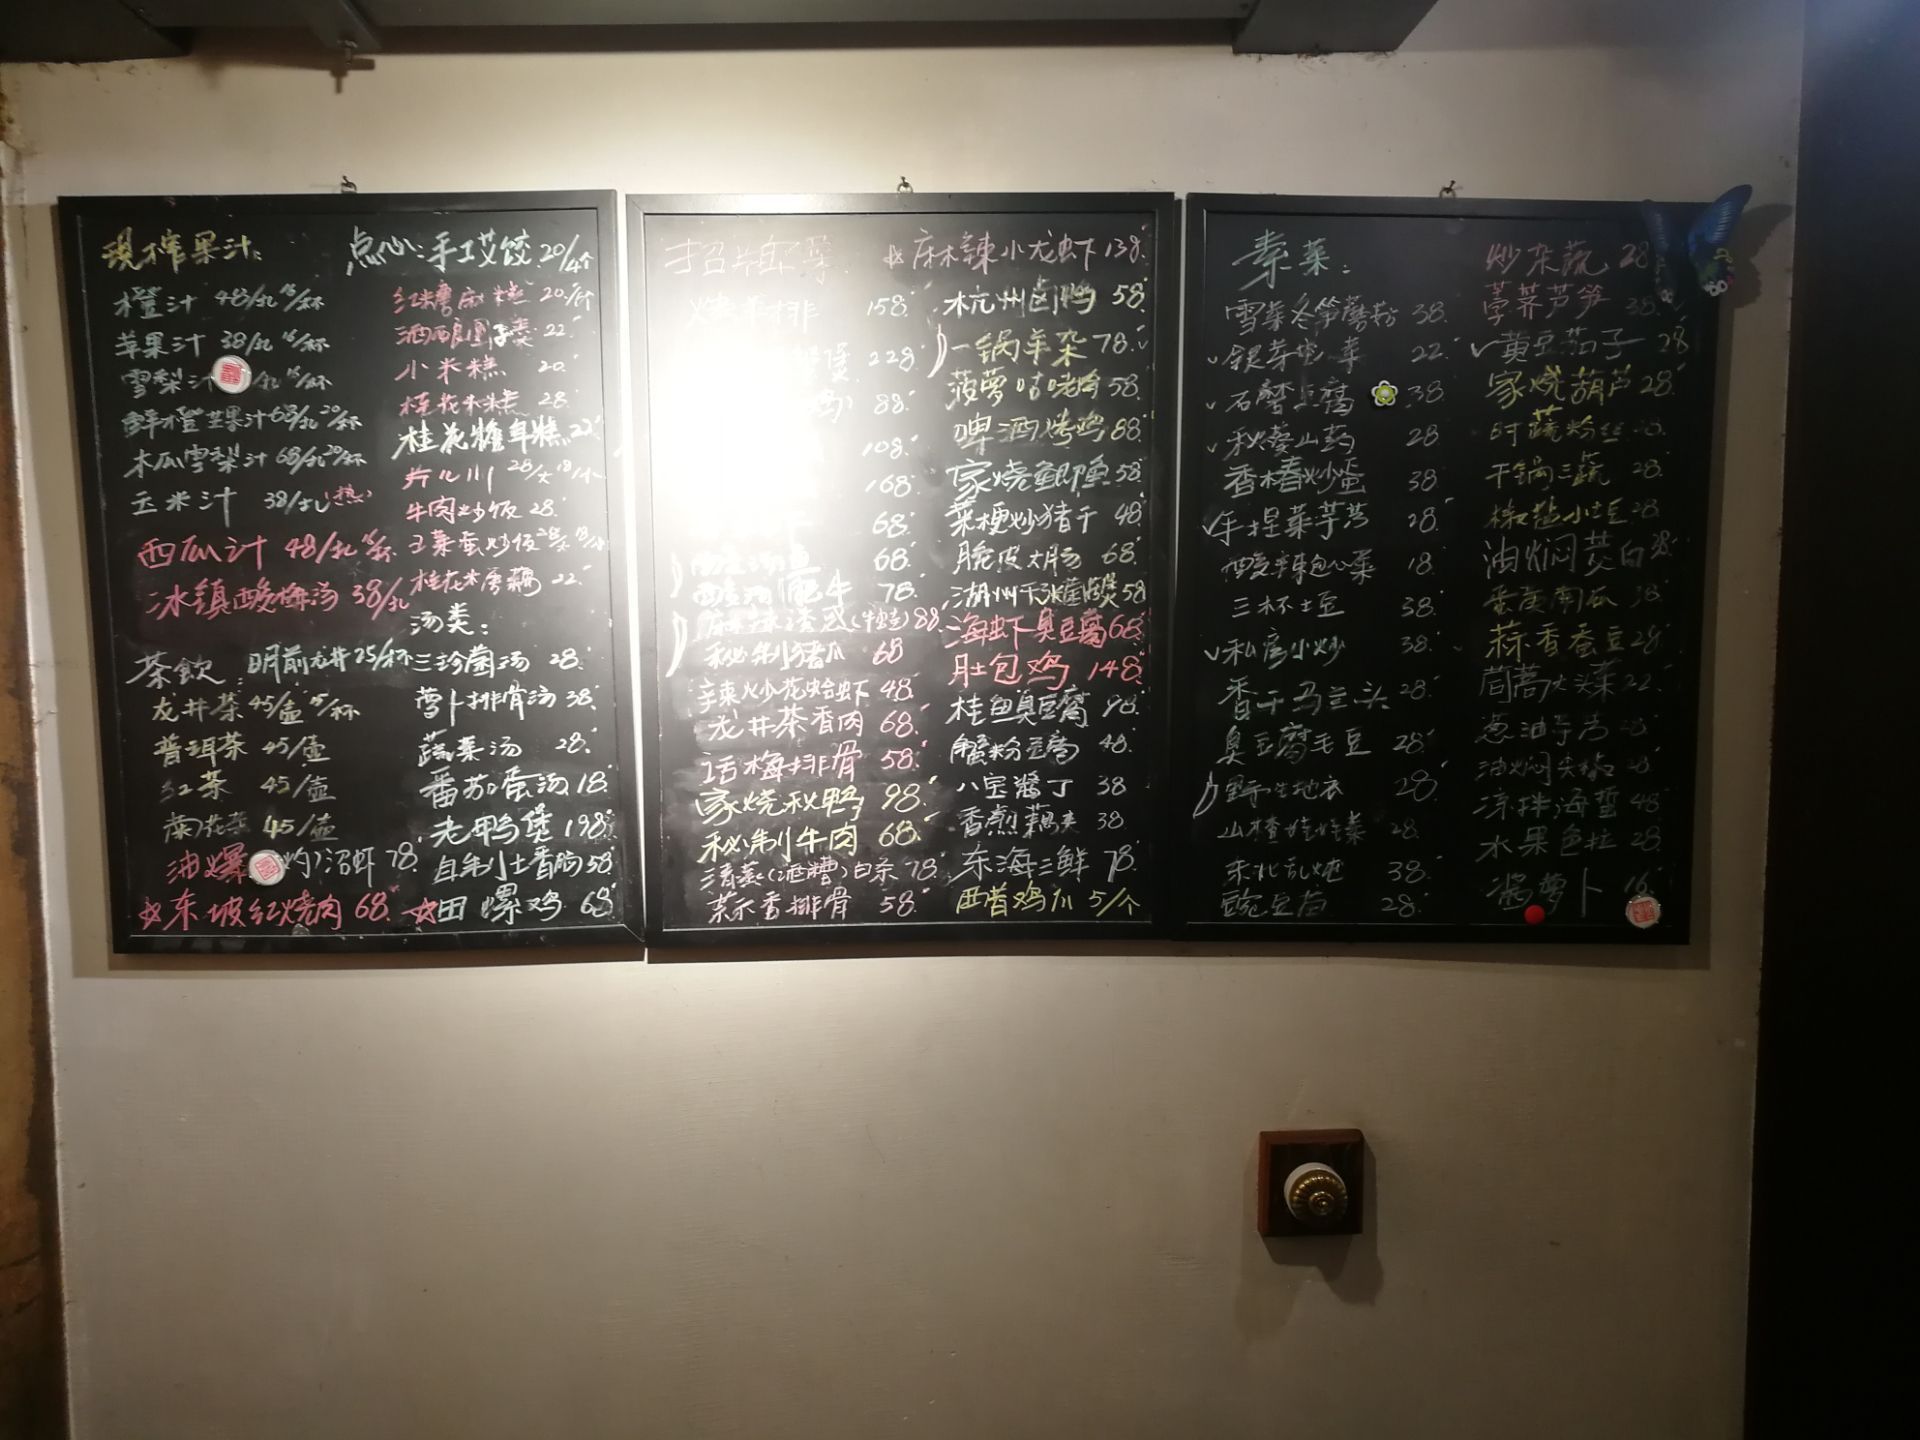 现榨果汁:
橙汁 48/扎 18/杯
苹果汁 38/扎 15/杯
雪梨汁 /扎 15/杯
鲜橙苹果汁 68/扎 20/杯
木瓜雪梨汁 68/扎 20/杯
玉米汁 38/扎(热)
西瓜汁 48/扎 /杯
冰镇酸梅汤 38/扎
茶饮: 明前龙井 25/杯
龙井茶 45/壶 15/杯
普洱茶 45/壶
红茶 45/壶
菊花茶 45/壶
油爆 (灼)沼虾 78.
☆东坡红烧肉 68.
点心: 手工艾饺 20/4个
红糖麻糍 20./个
酒酿圆子羹 22.
小米糕 20.
桂花米糕 28.
桂花糍年糕 22
片儿川 28/大 18/小
牛肉炒饭 28.
菜蛋炒饭 28/大 18/小
桂花米唐藕 22.
汤类:
三珍菌汤 28.
萝卜排骨汤 38.
蔬菜汤 28.
番茄蛋汤 18.
老鸭煲 198.
自制土香肠 58.
☆田螺鸡 68.
招牌菜:
烤羊排 158.
煲 228.
88.
108.
168.
68.
68.
酸汤肥牛 78.
麻辣诱惑(牛蛙) 88.
秘制猪爪 68
辣炒花蛤虾 48.
龙井茶香肉 68.
话梅排骨 58.
家烧秋鸭 98.
秘制牛肉 68.
清蒸(酒糟)白条 78.
茶香排骨 58.
☆麻辣小龙虾 138.
杭州卤鸭 58.
一锅羊杂 78.
菠萝咕咾肉 58.
啤酒烤鸡 88.
家烧鲫鱼 58.
菜梗炒猪干 48.
脆皮大肠 68.
湖州千张煲 58
海虾臭豆腐 68.
肚包鸡 148.
桂鱼臭豆腐 98.
蟹粉豆腐 48.
八宝酱丁 38
香煎藕夹 38.
东海三鲜 78.
西昔鸡爪 5/个
素菜:
雪菜冬笋蘑菇 38.
银芽韭菜 22.
石磨豆腐 38.
秋葵山药 28
香椿炒蛋 38.
手捏菜芋艿 28.
酸辣包心菜 18.
三杯土豆 38.
私房小炒 38.
香干马兰头 28.
臭豆腐毛豆 28.
野生地衣 28.
山楂娃娃菜 28.
东北乱炖 38.
豌豆苗 28.
炒杂蔬 28.
荸荠芦笋 38.
黄豆茄子 28
家烧葫芦 28.
时蔬粉丝 28.
干锅三蔬 28.
椒盐小土豆 28.
油焖茭白 38.
蛋黄南瓜 38.
蒜香蚕豆 28.
茼蒿大头菜 22.
葱油芋艿 28.
油焖尖椒 28.
凉拌海蜇 48.
水果色拉 28.
酱萝卜 16.